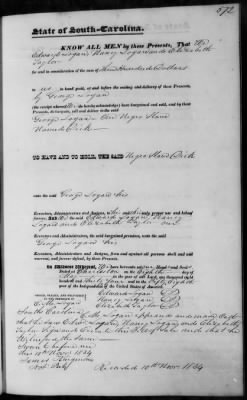 572
State of South-Carolina.
KNOW ALL MEN by these Presents, That We
Edward Logan, Nancy Logan and Elizabeth
Taylor
for and in consideration of the sum of Hundred Dollars
to us in hand paid, at and before the sealing and delivery of these Presents,
by George Logan
(the receipt whereof do hereby acknowledge) have bargained and sold, and by these
Presents, do bargain, sell and deliver to the said
George Logan One Negro Slave
Named Dick
TO HAVE AND TO HOLD, THE SAID Negro Slave Dick
unto the said George Logan his
Executors, Administrators and Assigns, to his and their only proper use and behoof
forever. AND We the said Edward Logan, Nancy
Logan and Elizabeth Taylor our
Executors and Administrators, the said bargained premises, unto the said
George Logan his
Executors, Administrators and Assigns, from and against all persons shall and will
warrant, and forever defend, by these Presents.
In Witness Whereof, We have hereunto set our Hand and Seal
Dated at Charleston on the Eighth day
of May in the year of our Lord, one thousand eight
hundred and thirty four and in the fifty Eighth
year of the Independence of the United States of America.
SIGNED, SEALED, AND DELIVERED
IN THE PRESENCE OF
Edward Logan
Nancy Logan
Elizabeth Taylor
South Carolina
Logan and Elizabeth
Witness the same
Sworn to before me
this 10th Novr 1834
Not. Pub.
Recorded 10th Novr 1834